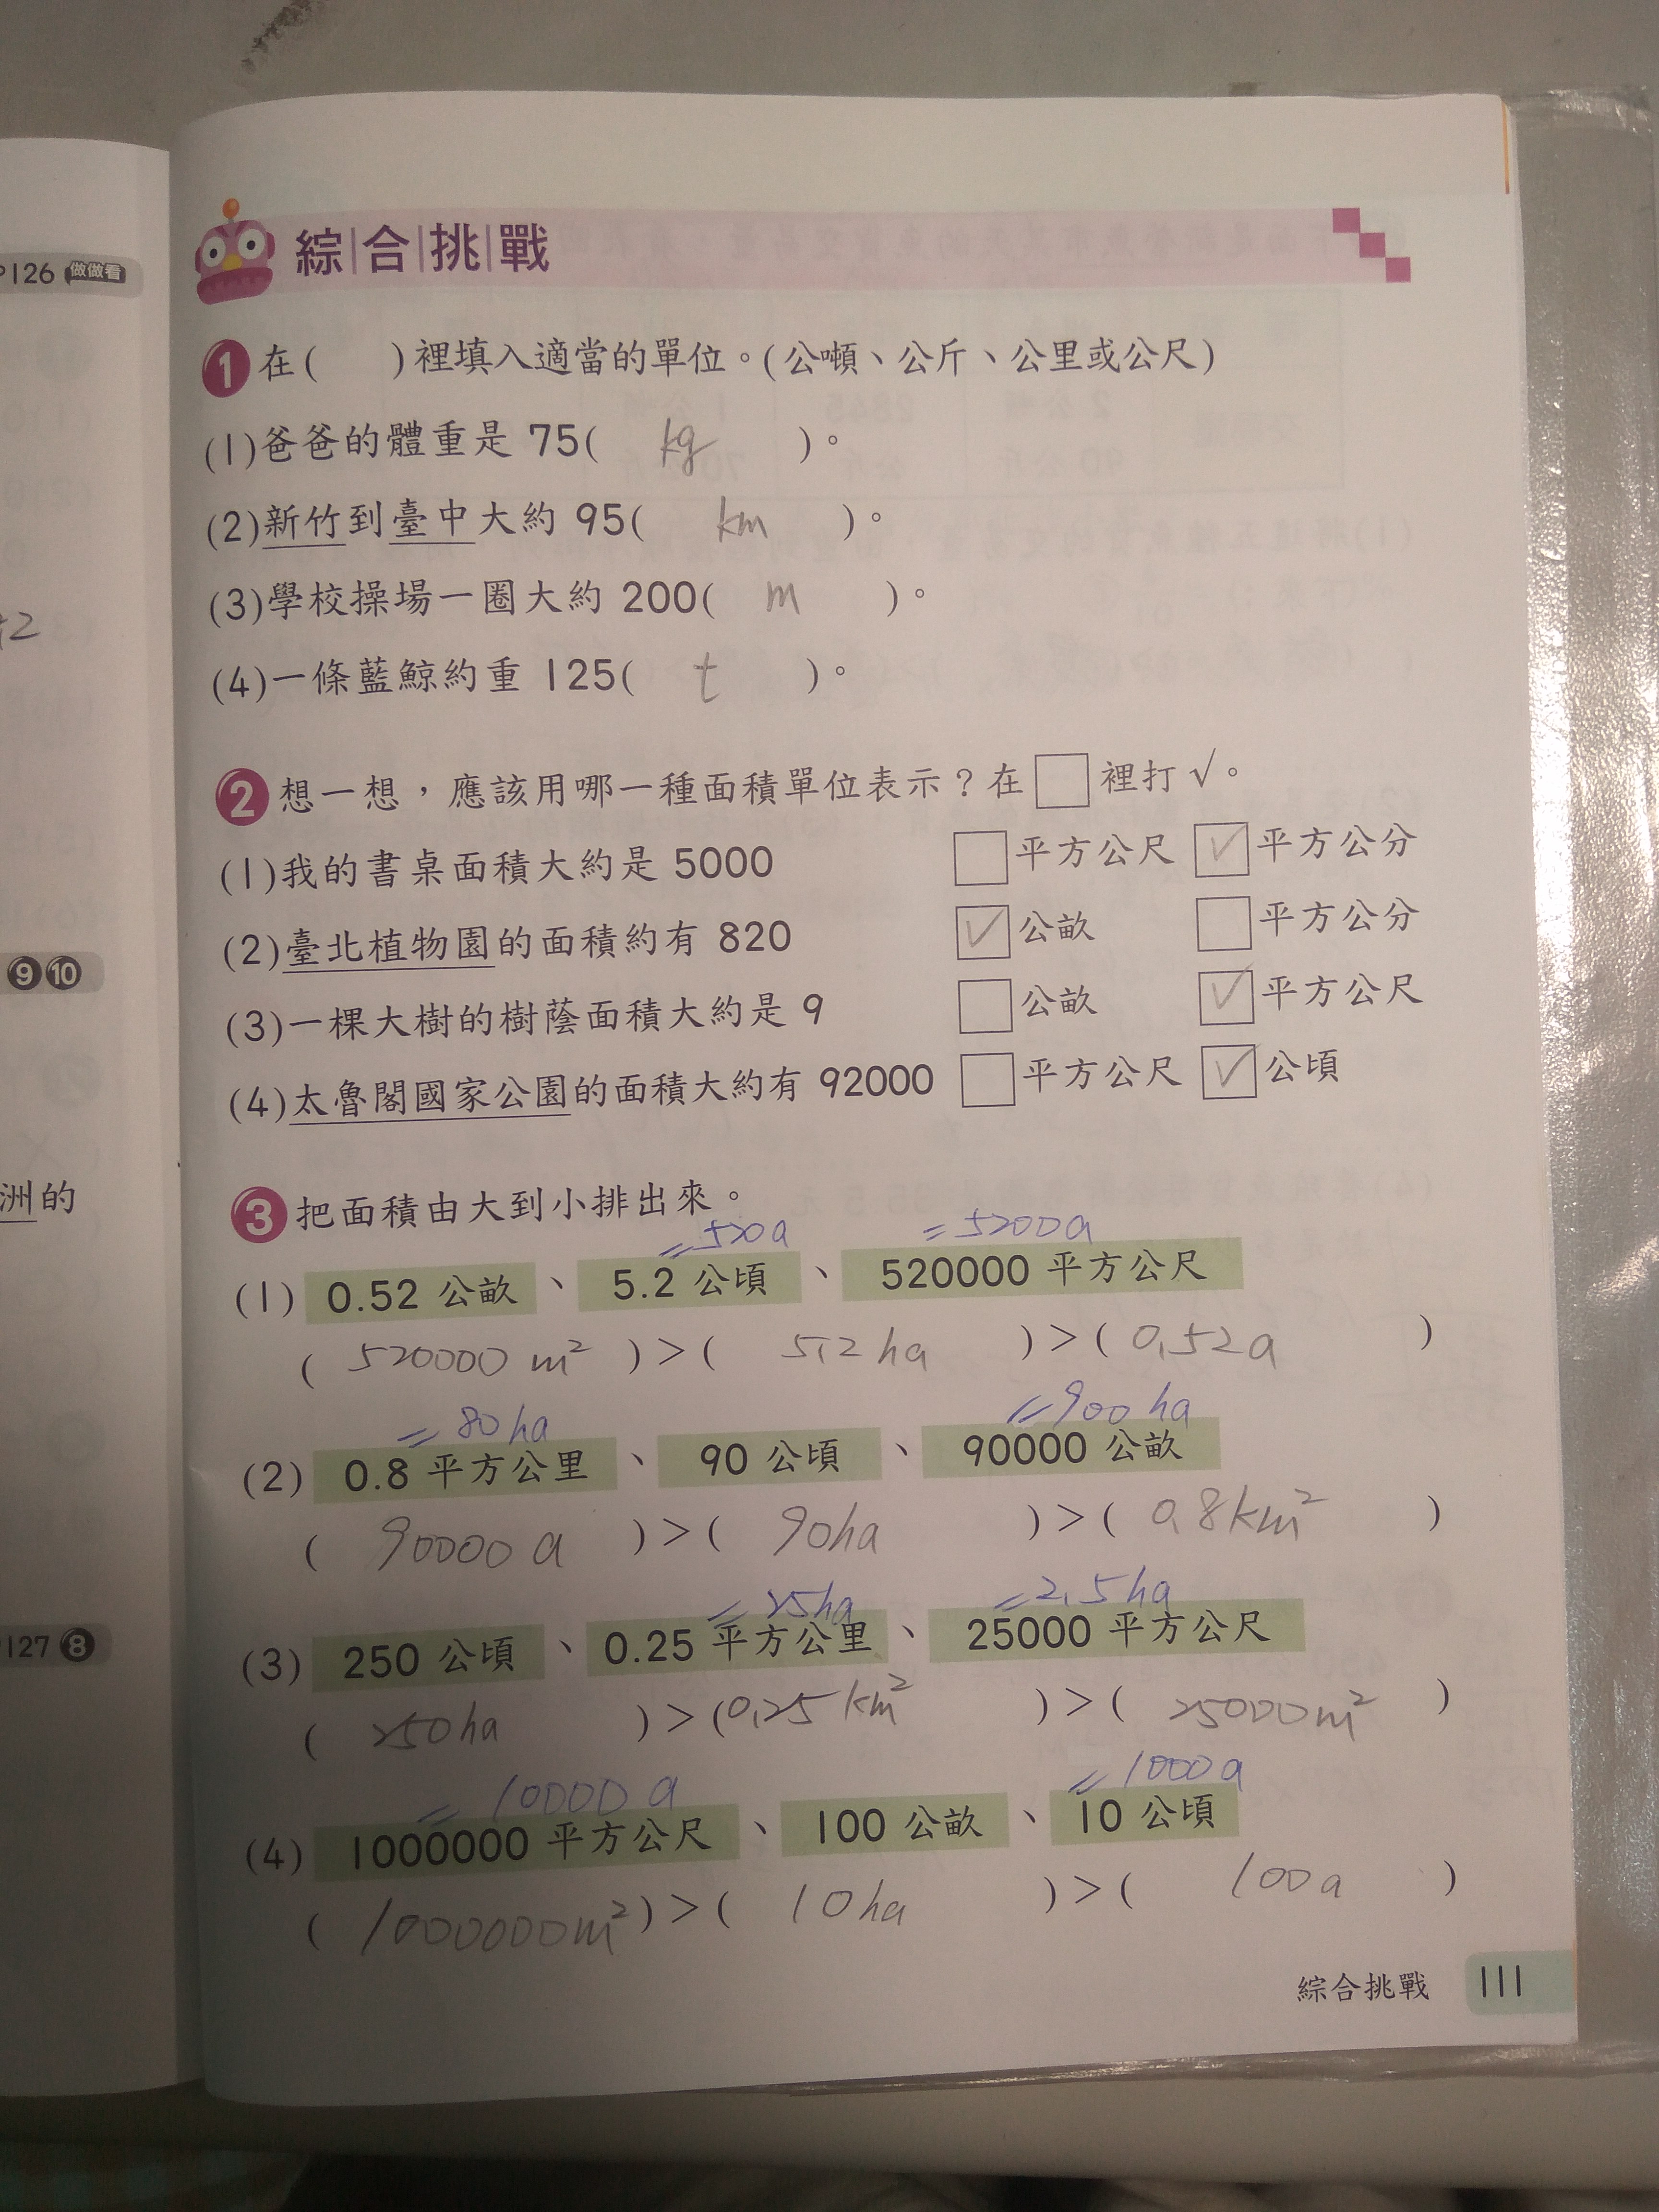 P126 做做看
綜合挑戰
1 在(　　)裡填入適當的單位。(公噸、公斤、公里或公尺)
(1)爸爸的體重是 75( kg )。
(2)新竹到臺中大約 95( km )。
(3)學校操場一圈大約 200( m )。
(4)一條藍鯨約重 125( t )。
2 想一想，應該用哪一種面積單位表示？在□裡打√。
(1)我的書桌面積大約是 5000 □平方公尺 ☑平方公分
(2)臺北植物園的面積約有 820 ☑公畝 □平方公分
(3)一棵大樹的樹蔭面積大約是 9 □公畝 ☑平方公尺
(4)太魯閣國家公園的面積大約有 92000 □平方公尺 ☑公頃
9 10
洲的
P127 8
3 把面積由大到小排出來。
=520a =5200a
(1) 0.52 公畝、5.2 公頃、520000 平方公尺
( 520000 m² )>( 5.2 ha )>( 0.52a )
=80ha =900ha
(2) 0.8 平方公里、90 公頃、90000 公畝
( 90000 a )>( 90ha )>( 0.8km² )
=25ha =2.5ha
(3) 250 公頃、0.25 平方公里、25000 平方公尺
( 250ha )>( 0.25 km² )>( 25000m² )
=10000a =1000a
(4) 1000000 平方公尺、100 公畝、10 公頃
( 1000000m² )>( 10ha )>( 100a )
綜合挑戰 111